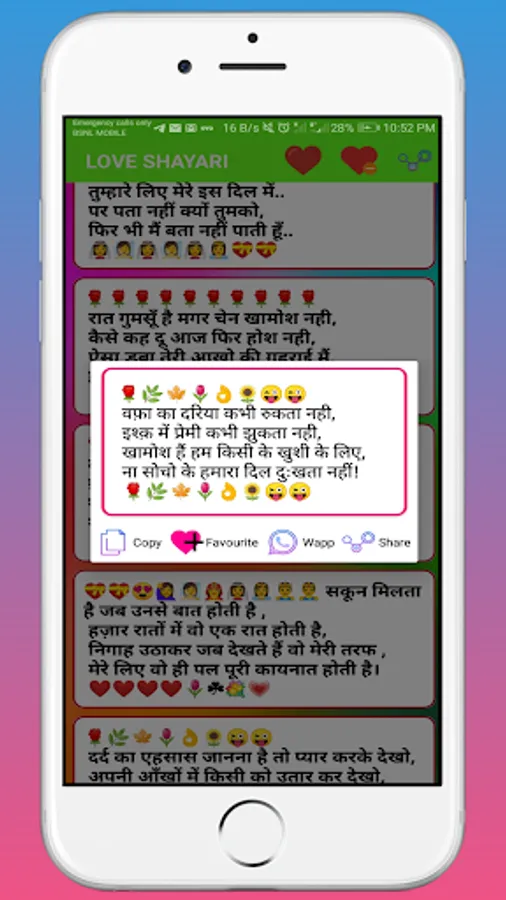 Emergency calls only
BSNL MOBILE
16 B/s 28% 10:52 PM
LOVE SHAYARI
तुम्हारे लिए मेरे इस दिल में..
पर पता नहीं क्यों तुमको,
फिर भी मैं बता नहीं पाती हूँ..
रात गुमसूँ है मगर चेन खामोश नही,
कैसे कह दू आज फिर होश नही,
ऐसा डूबा तेरी आखो की गहराई मैं,
वफ़ा का दरिया कभी रुकता नही,
इश्क़ में प्रेमी कभी झुकता नही,
खामोश हैं हम किसी के खुशी के लिए,
ना सोचो के हमारा दिल दुःखता नहीं!
Copy Favourite Wapp Share
सकून मिलता
है जब उनसे बात होती है ,
हज़ार रातों में वो एक रात होती है,
निगाह उठाकर जब देखते हैं वो मेरी तरफ ,
मेरे लिए वो ही पल पूरी कायनात होती है।
दर्द का एहसास जानना है तो प्यार करके देखो,
अपनी आँखों में किसी को उतार कर देखो,